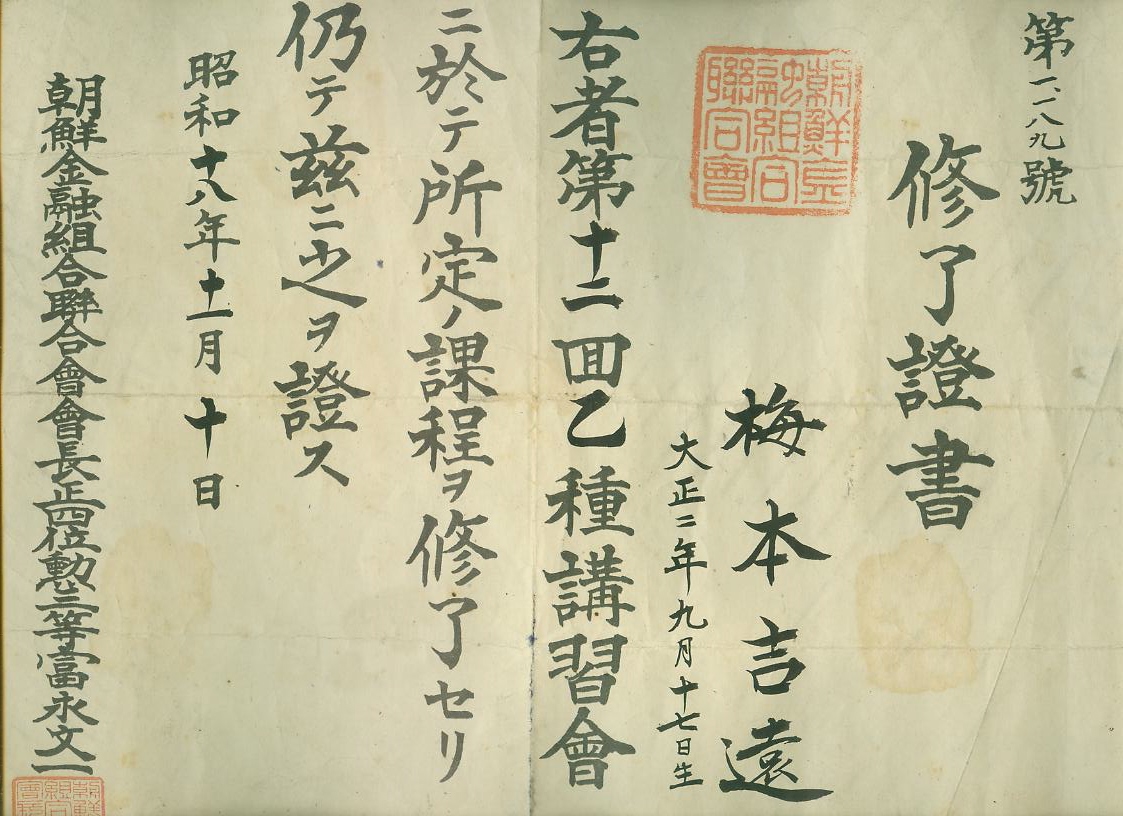 第一、一八九號
修了證書
朝鮮金融組合聯合會
梅本吉遠
大正二年九月十七日生
右者第十二囬乙種講習會
ニ於テ所定ノ課程ヲ修了セリ
仍テ茲ニ之ヲ證ス
昭和十八年十一月十日
朝鮮金融組合聯合會會長正四位勳三等富永文一